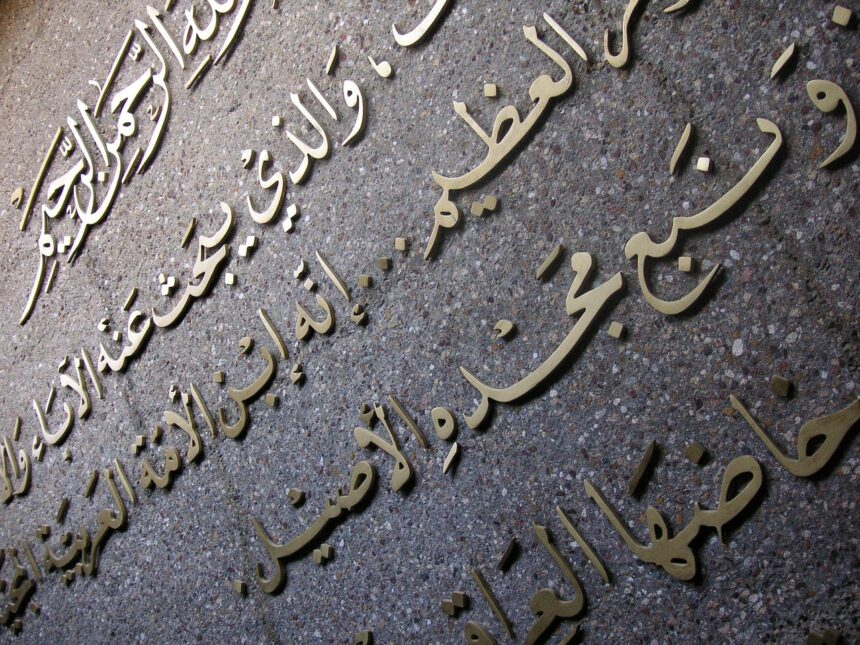 الله الرَّحمٰنِ الرَّحِيم
وَالذيْ يبحَث عَنْه الآبَاء
العظيم... إنّه إبْن الأمّة العَربيَّة
و نبع مجْدهِ الأصيْل.
حاضنها العِراق